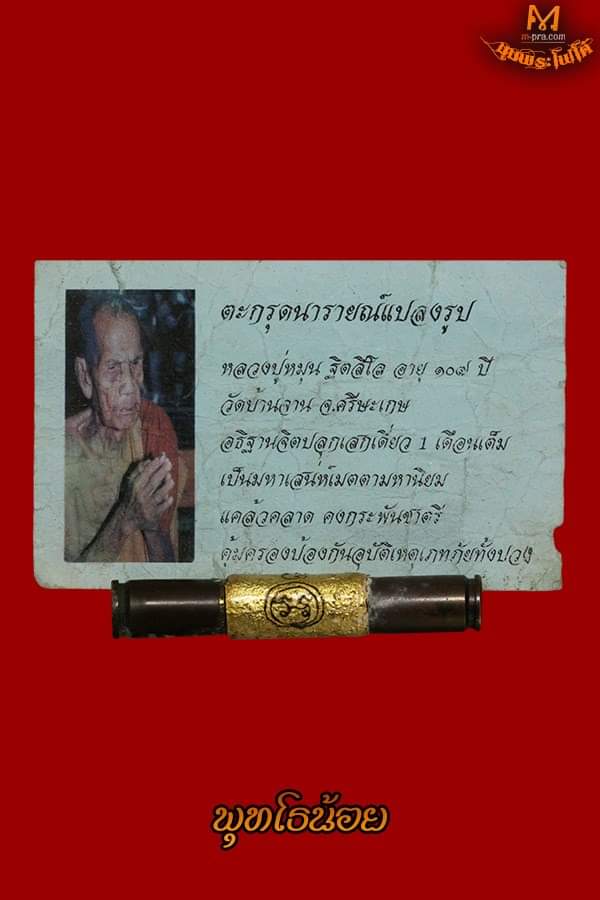 m-pra.com
มุมพระโฟโต้
ตะกรุดนารายณ์แปลงรูป
หลวงปู่หมุน ฐิตสีโล อายุ ๑๐๘ ปี
วัดบ้านจาน อ.ศรีษะเกษ
อธิฐานจิตปลุกเสกเดี่ยว 1 เดือนเต็ม
เป็นมหาเสน่ห์เมตตามหานิยม
แคล้วคลาด คงกระพันชาตรี
คุ้มครองป้องกันอุบัติเหตุเภทภัยทั้งปวง
พุทโธน้อย